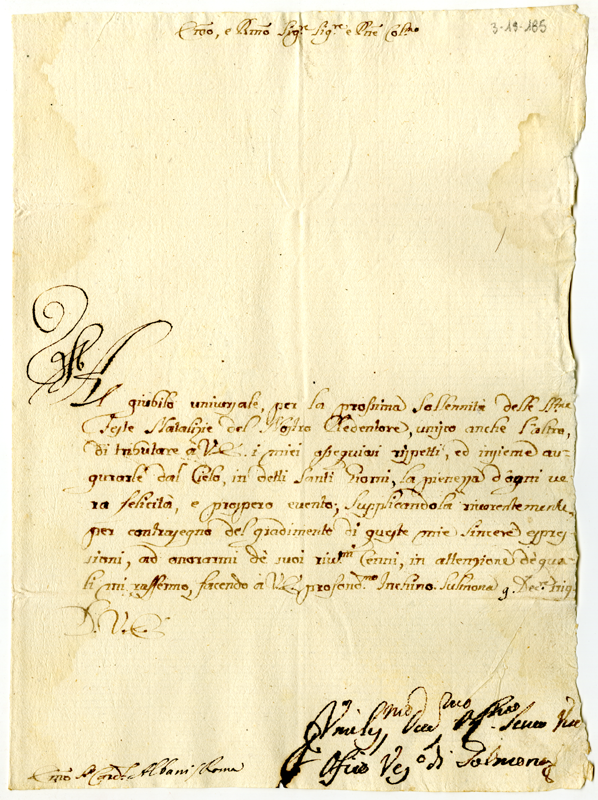 3-19-185
Emo, e Rmo Sigre Sigre e Pne Colmo
Al giubilo universale, per la prossima Sollennità delle SSme
Feste Natalizie del Nostro Redentore, unisco anche l'altro,
di tributare à V.E. i miei ossequiosi rispetti, ed insieme au-
gurarle dal Cielo, in detti Santi Giorni, la pienezza d'ogni ve
ra felicità, e prospero evento; Supplicandola riverentemente
per contrasegno del gradimento di queste mie sincere espres
sioni, ad onorarmi de suoi rivmi Cenni, in attenzione de qua-
li mi raffermo, facendo à V.E. profondmo Inchino. Sulmona 9. Dece.
D. V. E.
Umilmo Devmo Servo
Vesco di Solmona
Emo Sr Cardle Albani Roma